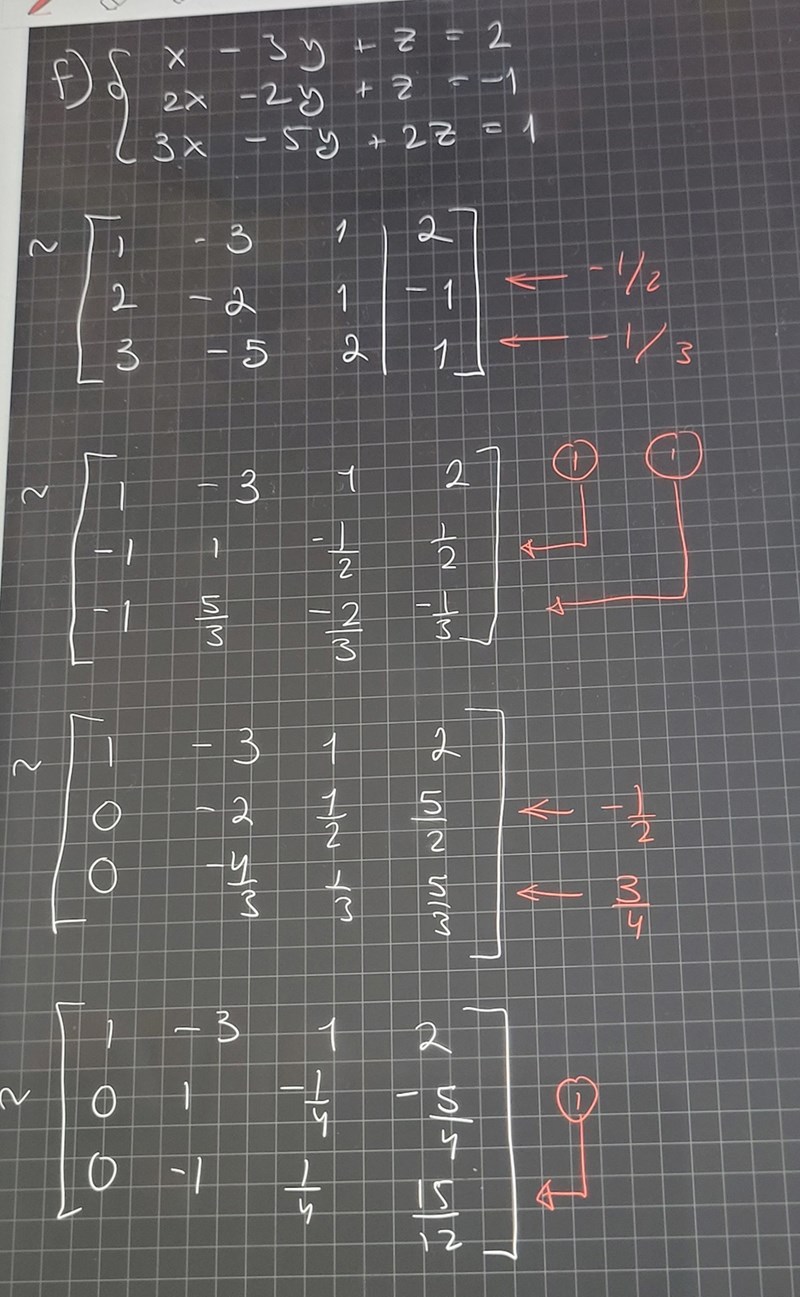 f) { x - 3y + z = 2
2x - 2y + z = -1
3x - 5y + 2z = 1
~ [ 1 -3 1 | 2 ]
2 -2 1 | -1 ← -1/2
3 -5 2 | 1 ← -1/3
~ [ 1 -3 1 2 ] ① ①
-1 1 -1/2 1/2
-1 5/3 -2/3 -1/3
~ [ 1 -3 1 2 ]
0 -2 1/2 5/2 ← -1/2
0 -4/3 1/3 5/3 ← 3/4
~ [ 1 -3 1 2 ]
0 1 -1/4 -5/4 ①
0 -1 1/4 15/12